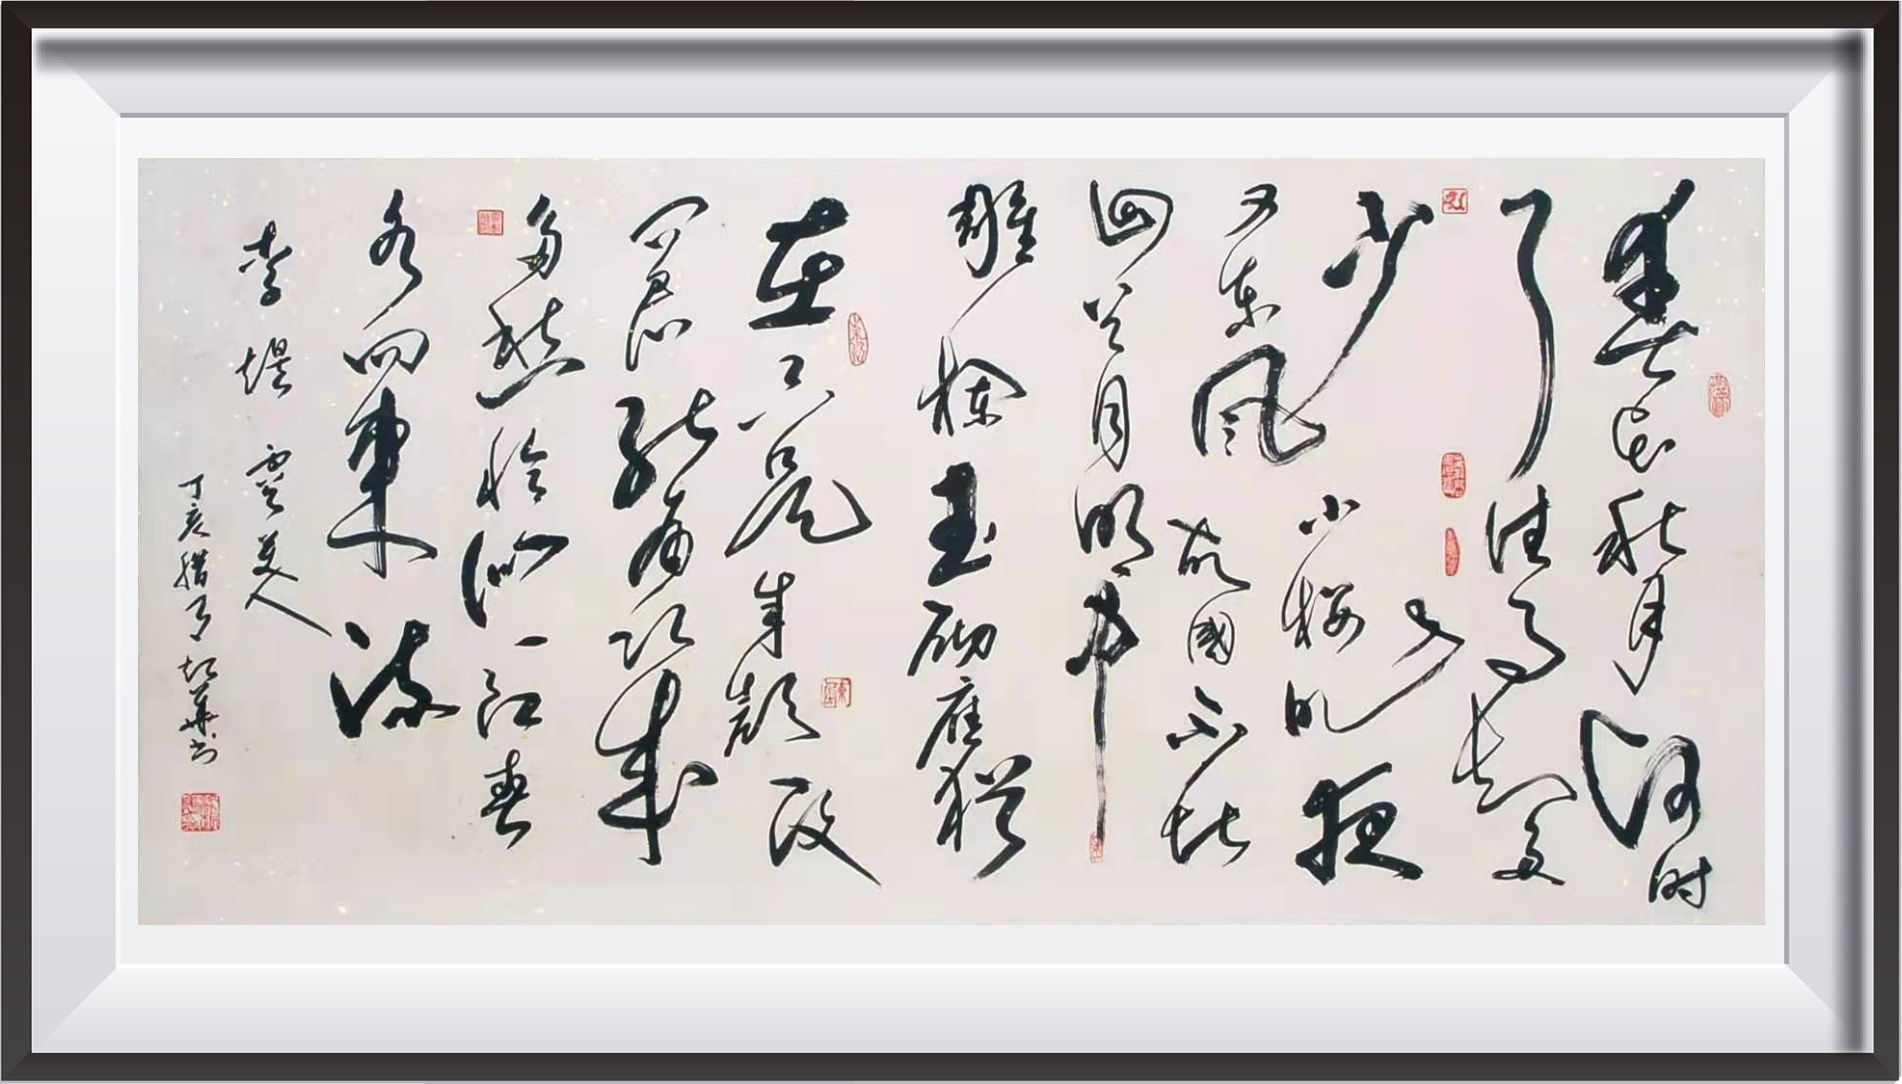 春花秋月何时
了往事知多
少小楼昨夜
又东风故國不堪
回首月明中
雕栏玉砌應猶
在只是朱颜改
问君能有幾
多愁恰似一江春
水向東流
李煜 虞美人
丁亥腊月華书